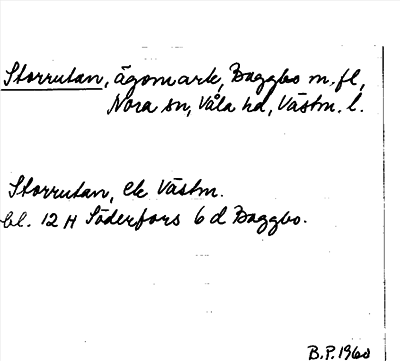 Storrutan, ägomark, Baggbo m.fl,
Nora sn, Våla hd, Västm. l.
Storrutan, ek Västm.
bl. 12 H Söderfors 6 d Baggbo.
B.P. 1960